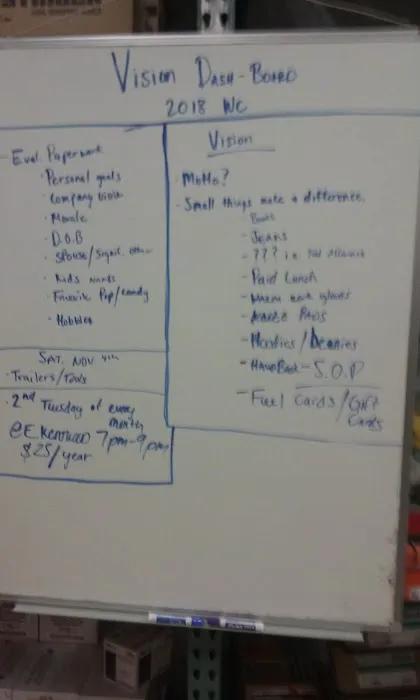 Vision Dash-Board
2018 WC
- Eval. Paperwork
· Personal goals
· Company vision
· Morale
· D.O.B
· Spouse/Signif. other
· Kids names
· Favorite Pop/candy
· Hobbies
SAT. NOV 4th
· Trailers/Tools
· 2nd Tuesday of every month
@ E. Kentwood 7pm-9pm
$25/year
Vision
· MoMo?
· Small things make a difference.
Boots
- Jeans
- ??? i.e.
- Paid Lunch
- Warm work gloves
- Knee Pads
- Hoodies/Beanies
- HandBook - S.O.P
- Fuel Cards/Gift Cards